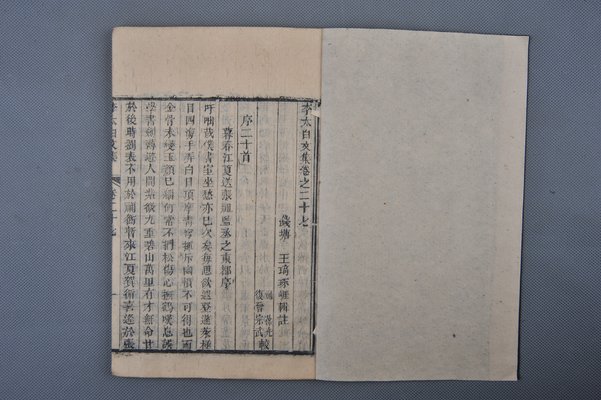 李太白文集卷之二十七
錢塘 王琦琢崖輯註
復曾宗武較
序二十首
暮春江夏送張祖監丞之東都序
吁咄哉僕書室坐愁亦已久矣每思欲遐登蓬萊極
目四海手弄白日頂摩青穹揮斥幽憤不可得也而
金骨未變玉顏已緇何常不捫松傷心撫鶴嘆息誤
學書劍薄遊人間紫微九重碧山萬里有才無命甘
於後時劉表不用於禰衡暫來江夏賀循喜逢於張
李太白文集
卷二十七
一